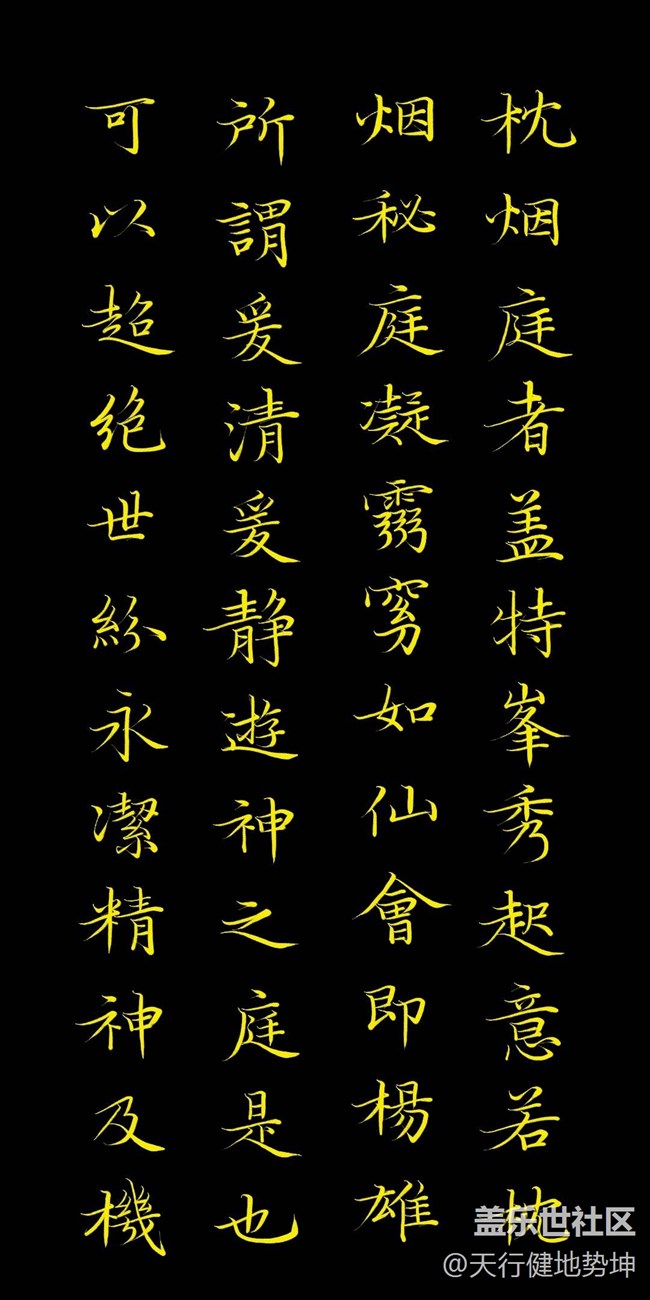 枕烟庭者盖特峯秀起意若枕
烟秘庭凝靄窅如仙會即楊雄
所謂爰清爰静遊神之庭是也
可以超絶世紛永潔精神及機
盖乐世社区
@天行健地势坤